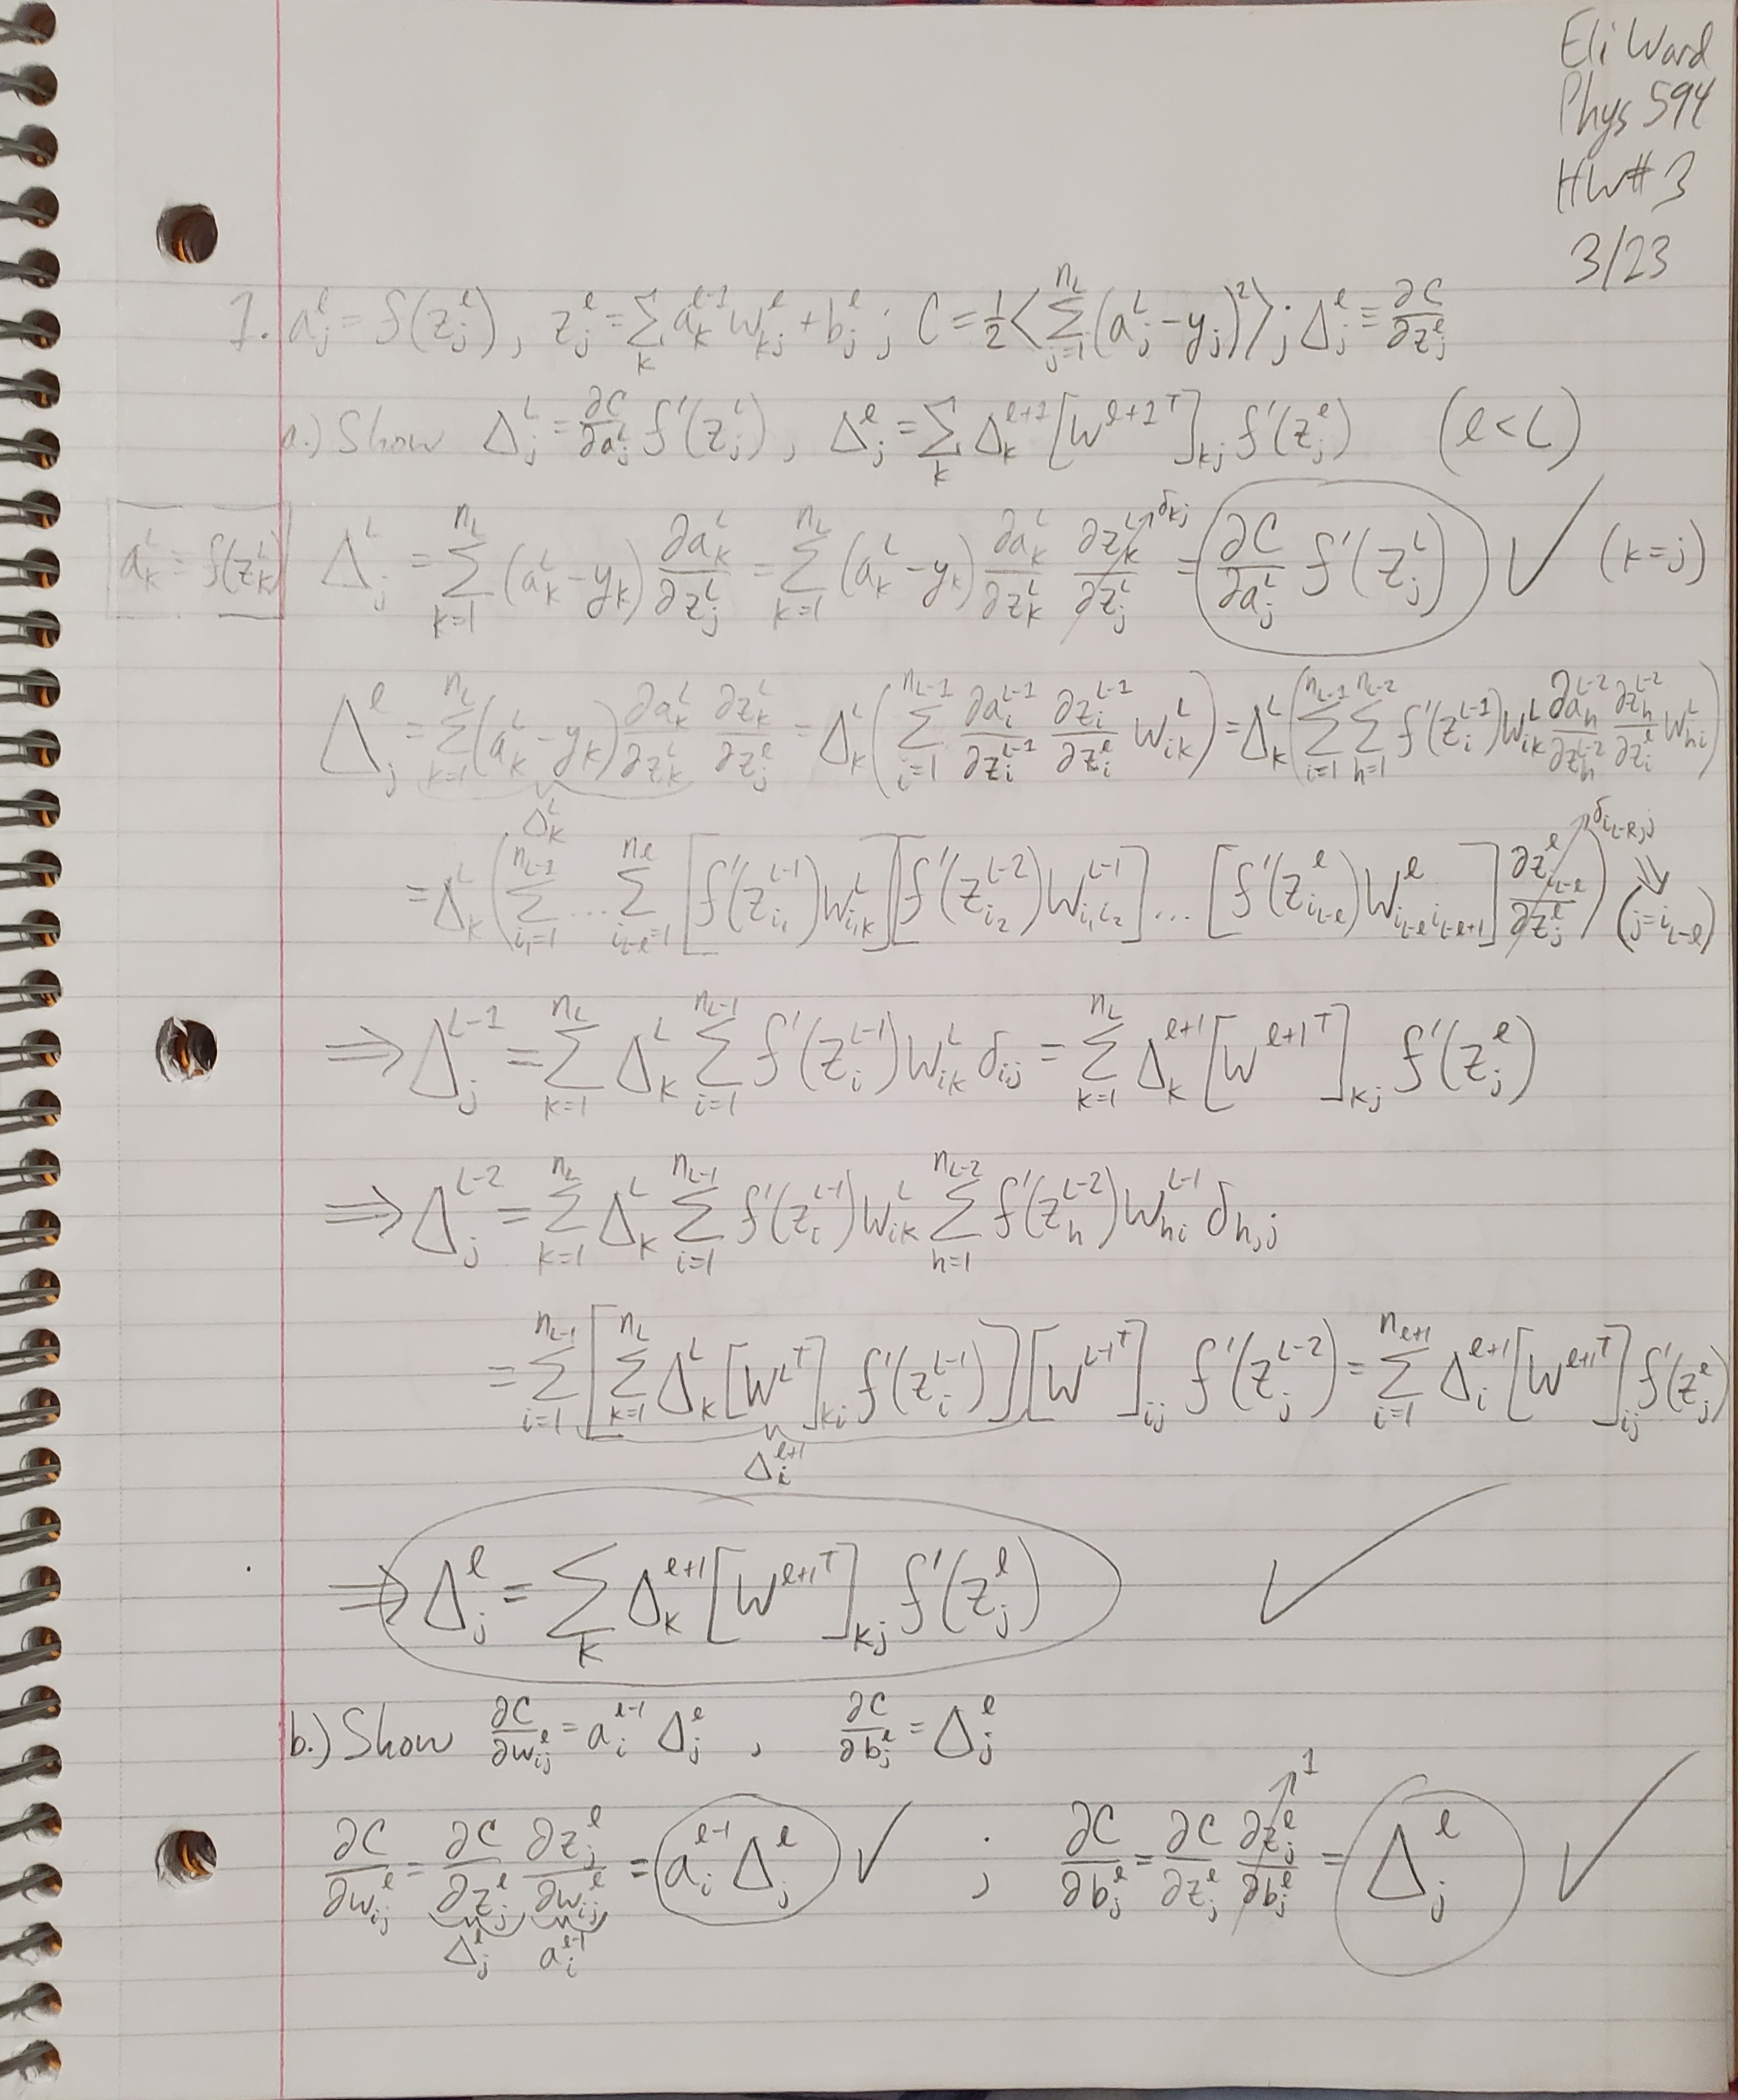 Eli Ward
Phys 594
HW# 3
3/23
1. a_j^l = f(z_j^l), z_j^l = ∑_k a_k^{l-1} w_{kj}^l + b_j^l ; C = 1/2 ⟨∑_{j=1}^{n_L} (a_j^L - y_j)^2⟩ ; Δ_j^l ≡ ∂C/∂z_j^l
a.) Show Δ_j^L = ∂C/∂a_j^L f'(z_j^L), Δ_j^l = ∑_k Δ_k^{l+1} [W^{l+1 T}]_{kj} f'(z_j^l) (l < L)
a_k^L = f(z_k^L) Δ_j^L = ∑_{k=1}^{n_L} (a_k^L - y_k) ∂a_k^L/∂z_j^L = ∑_{k=1}^{n_L} (a_k^L - y_k) ∂a_k^L/∂z_k^L ∂z_k^L/∂z_j^L → δ_{kj} = ∂C/∂a_j^L f'(z_j^L) ✓ (k=j)
Δ_j^l = ∑_{k=1}^{n_L} (a_k^L - y_k) ∂a_k^L/∂z_k^L ∂z_k^L/∂z_j^l = Δ_k^L (∑_{i=1}^{n_{L-1}} ∂a_i^{L-1}/∂z_i^{L-1} ∂z_i^{L-1}/∂z_i^l w_{ik}^L) = Δ_k^L (∑_{i=1}^{n_{L-1}} ∑_{h=1}^{n_{L-2}} f'(z_i^{L-1}) w_{ik}^L ∂a_h^{L-2}/∂z_h^{L-2} ∂z_h^{L-2}/∂z_i^l w_{hi}^L)
Δ_k^L
= Δ_k^L (∑_{i_1=1}^{n_{L-1}} ... ∑_{i_{L-l}=1}^{n_l} [f'(z_{i_1}^{L-1}) w_{i_1k}^L] [f'(z_{i_2}^{L-2}) W_{i_1i_2}^{L-1}] ... [f'(z_{i_{L-l}}^l) W_{i_{L-l}i_{L-l+1}}^l] ∂z_{i_{L-l}}^l/∂z_j^l) → δ_{i_{L-l},j} ⇒ (j = i_{L-l})
⇒ Δ_j^{L-1} = ∑_{k=1}^{n_L} Δ_k^L ∑_{i=1}^{n_{L-1}} f'(z_i^{L-1}) w_{ik}^L δ_{ij} = ∑_{k=1}^{n_L} Δ_k^{l+1} [W^{l+1 T}]_{kj} f'(z_j^l)
⇒ Δ_j^{L-2} = ∑_{k=1}^{n_L} Δ_k^L ∑_{i=1}^{n_{L-1}} f'(z_i^{L-1}) w_{ik}^L ∑_{h=1}^{n_{L-2}} f'(z_h^{L-2}) W_{hi}^{L-1} δ_{h,j}
= ∑_{i=1}^{n_{L-1}} [∑_{k=1}^{n_L} Δ_k^L [W^{L T}]_{ki} f'(z_i^{L-1})] [W^{L-1 T}]_{ij} f'(z_j^{L-2}) = ∑_{i=1}^{n_{l+1}} Δ_i^{l+1} [W^{l+1 T}]_{ij} f'(z_j^l)
Δ_i^{l+1}
⇒ Δ_j^l = ∑_k Δ_k^{l+1} [W^{l+1 T}]_{kj} f'(z_j^l) ✓
b.) Show ∂C/∂w_{ij}^l = a_i^{l-1} Δ_j^l , ∂C/∂b_j^l = Δ_j^l
∂C/∂w_{ij}^l = ∂C/∂z_j^l ∂z_j^l/∂w_{ij}^l = a_i^{l-1} Δ_j^l ✓ ; ∂C/∂b_j^l = ∂C/∂z_j^l ∂z_j^l/∂b_j^l → 1 = Δ_j^l ✓
Δ_j^l a_i^{l-1}